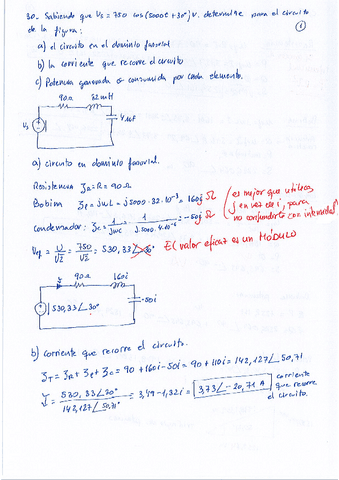 30.- Sabiendo que Vs = 750 cos(5000t + 30°) V. determinar para el circuito
de la figura:
a) el circuito en el dominio fasorial
b) la corriente que recorre el circuito
c) Potencia generada o consumida por cada elemento.
90Ω 32mH
Vs
4μF
a) circuito en dominio fasorial.
Resistencia ZR = R = 90 Ω
Bobina ZL = jωL = j5000·32·10⁻³ = 160j Ω
Condensador: Zc = 1/jωc = 1/j·5000·4·10⁻⁶ = -50j Ω
es mejor que utilices
j en vez de i, para
no confundirte con intensidad
Vef = V/√2 = 750/√2 = 530,33∠30° El valor eficaz es un MÓDULO
90Ω 160i
530,33∠30°
-50i
b) corriente que recorre el circuito.
ZT = ZR + ZL + Zc = 90 + 160i - 50i = 90 + 110i = 142,127∠50,71
I = 530,33∠30° / 142,127∠50,71° = 3,49 - 1,32i = 3,73∠-20,71 A
corriente
que recorre
el circuito.